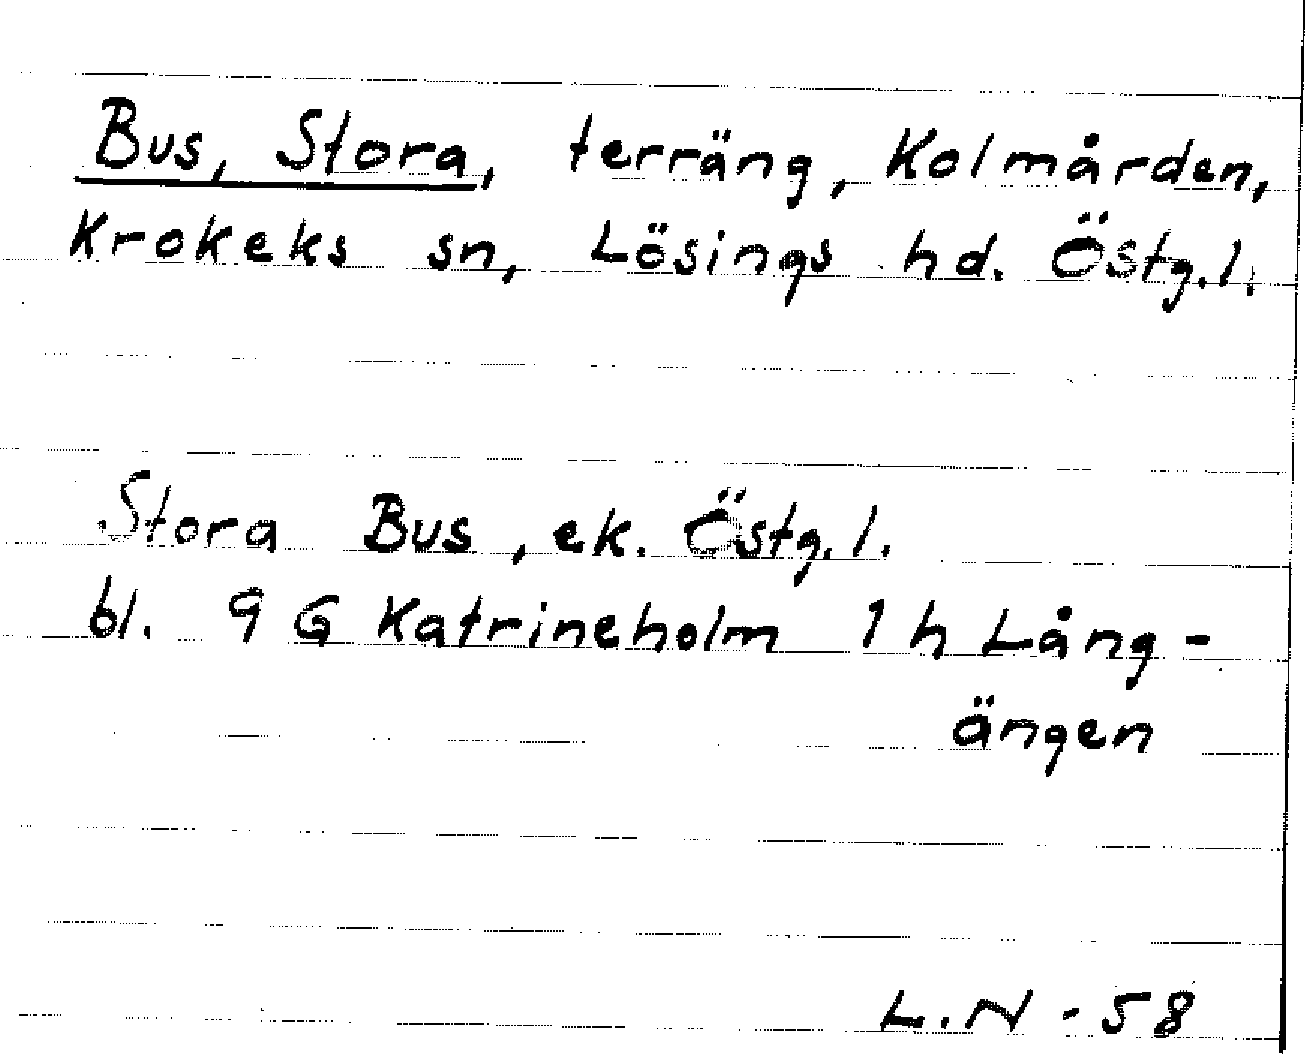 Bus, Stora, terräng, Kolmården,
Krokeks sn, Lösings hd. Östg.l.
Stora Bus, ek. Östg.l.
bl. 9 G Katrineholm 1 h Lång-
ängen
L.N - 58